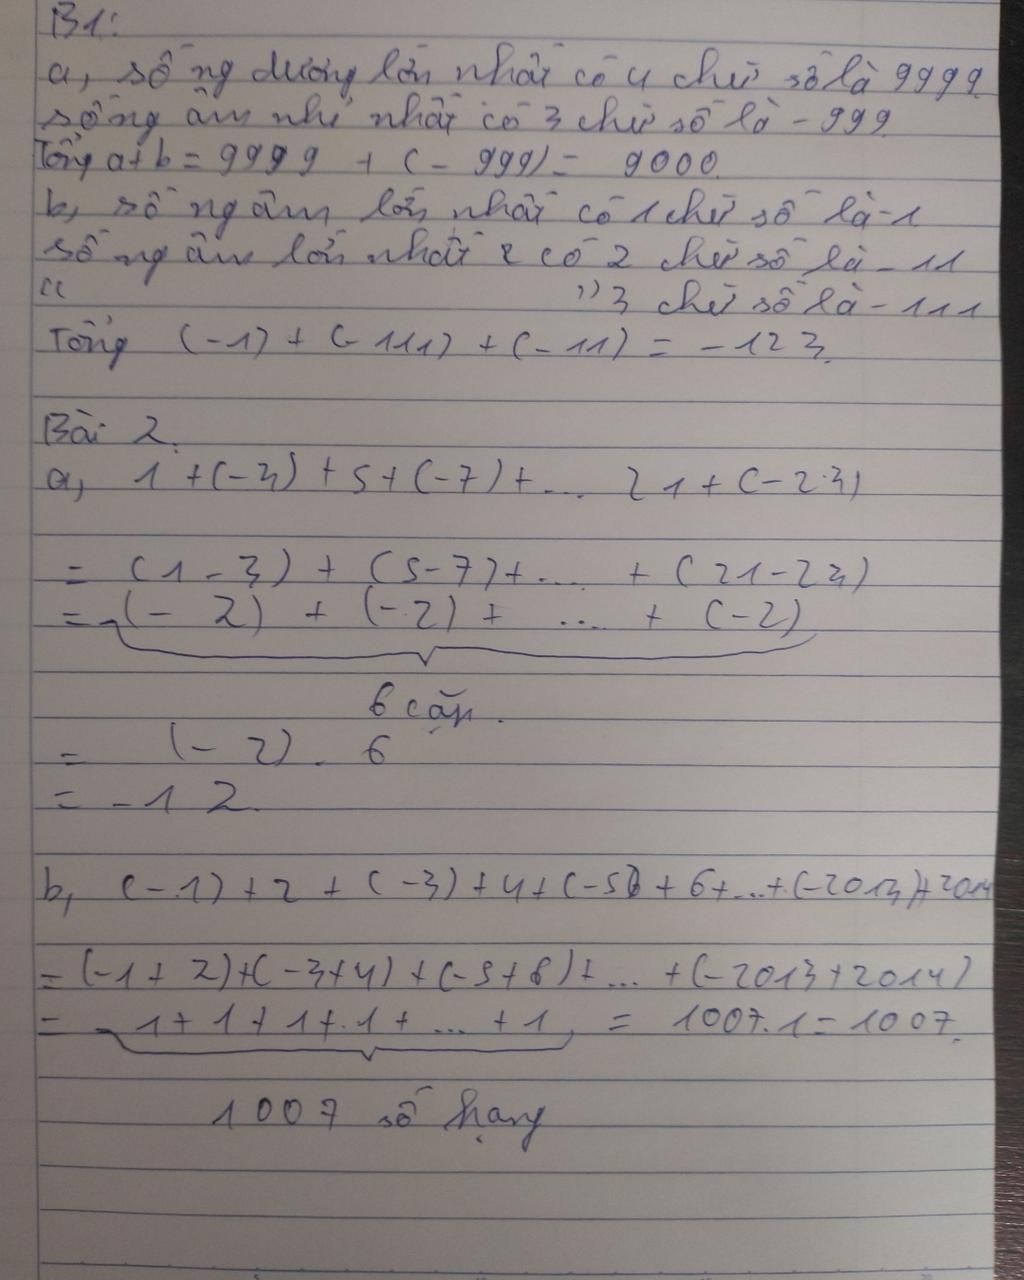 B1:
a, số ng dương lớn nhất có 4 chữ số là 9999.
số ng âm nhỏ nhất có 3 chữ số là -999
Tổng a+b = 9999 + (-999) = 9000.
b, số ng âm lớn nhất có 1 chữ số là -1
số ng âm lớn nhất có 2 chữ số là -11
" " 3 chữ số là -111
Tổng (-1) + (-111) + (-11) = -123.
Bài 2.
a, 1 + (-3) + 5 + (-7) + ... 21 + (-23)
= (1-3) + (5-7) + .... + (21-23)
= (-2) + (-2) + .... + (-2)
6 cặp.
= (-2) . 6
= -12.
b, (-1) + 2 + (-3) + 4 + (-5) + 6 + ... + (-2013) + 2014
= (-1+2) + (-3+4) + (-5+6) + ... + (-2013+2014)
= 1 + 1 + 1 + 1 + ... + 1 = 1007.1 = 1007.
1007 số hạng